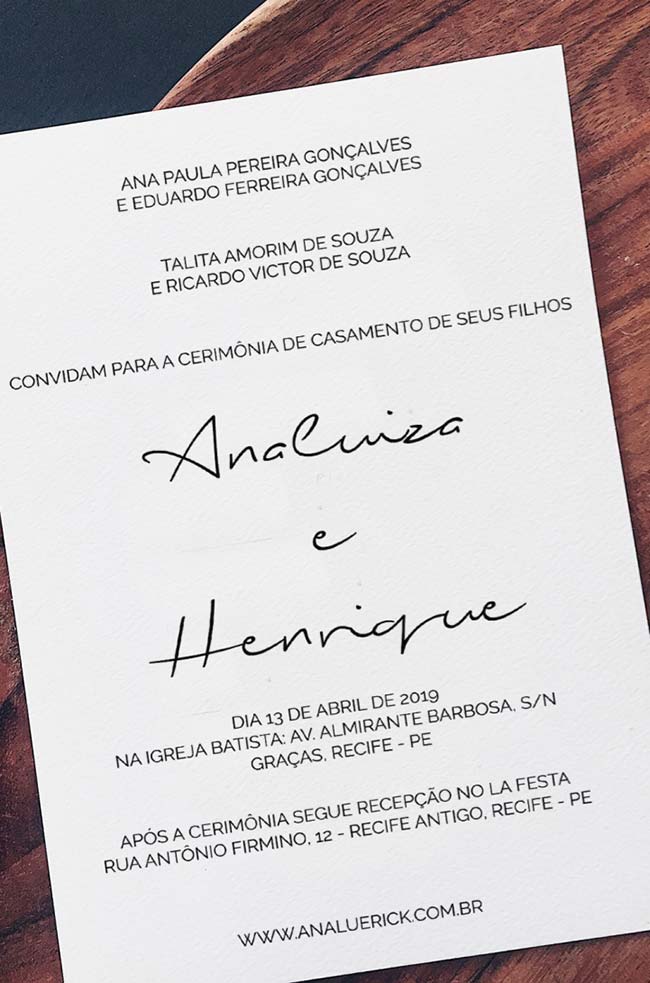 ANA PAULA PEREIRA GONÇALVES
E EDUARDO FERREIRA GONÇALVES
TALITA AMORIM DE SOUZA
E RICARDO VICTOR DE SOUZA
CONVIDAM PARA A CERIMÔNIA DE CASAMENTO DE SEUS FILHOS
Analuiza
e
Henrique
DIA 13 DE ABRIL DE 2019
NA IGREJA BATISTA: AV. ALMIRANTE BARBOSA, S/N
GRAÇAS, RECIFE - PE
APÓS A CERIMÔNIA SEGUE RECEPÇÃO NO LA FESTA
RUA ANTÔNIO FIRMINO, 12 - RECIFE ANTIGO, RECIFE - PE
WWW.ANALUERICK.COM.BR